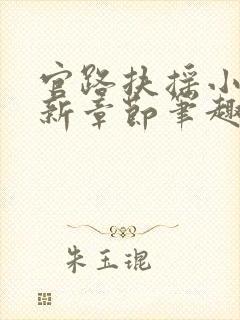 官路扶摇小
新章节笔趣
朱玉琨